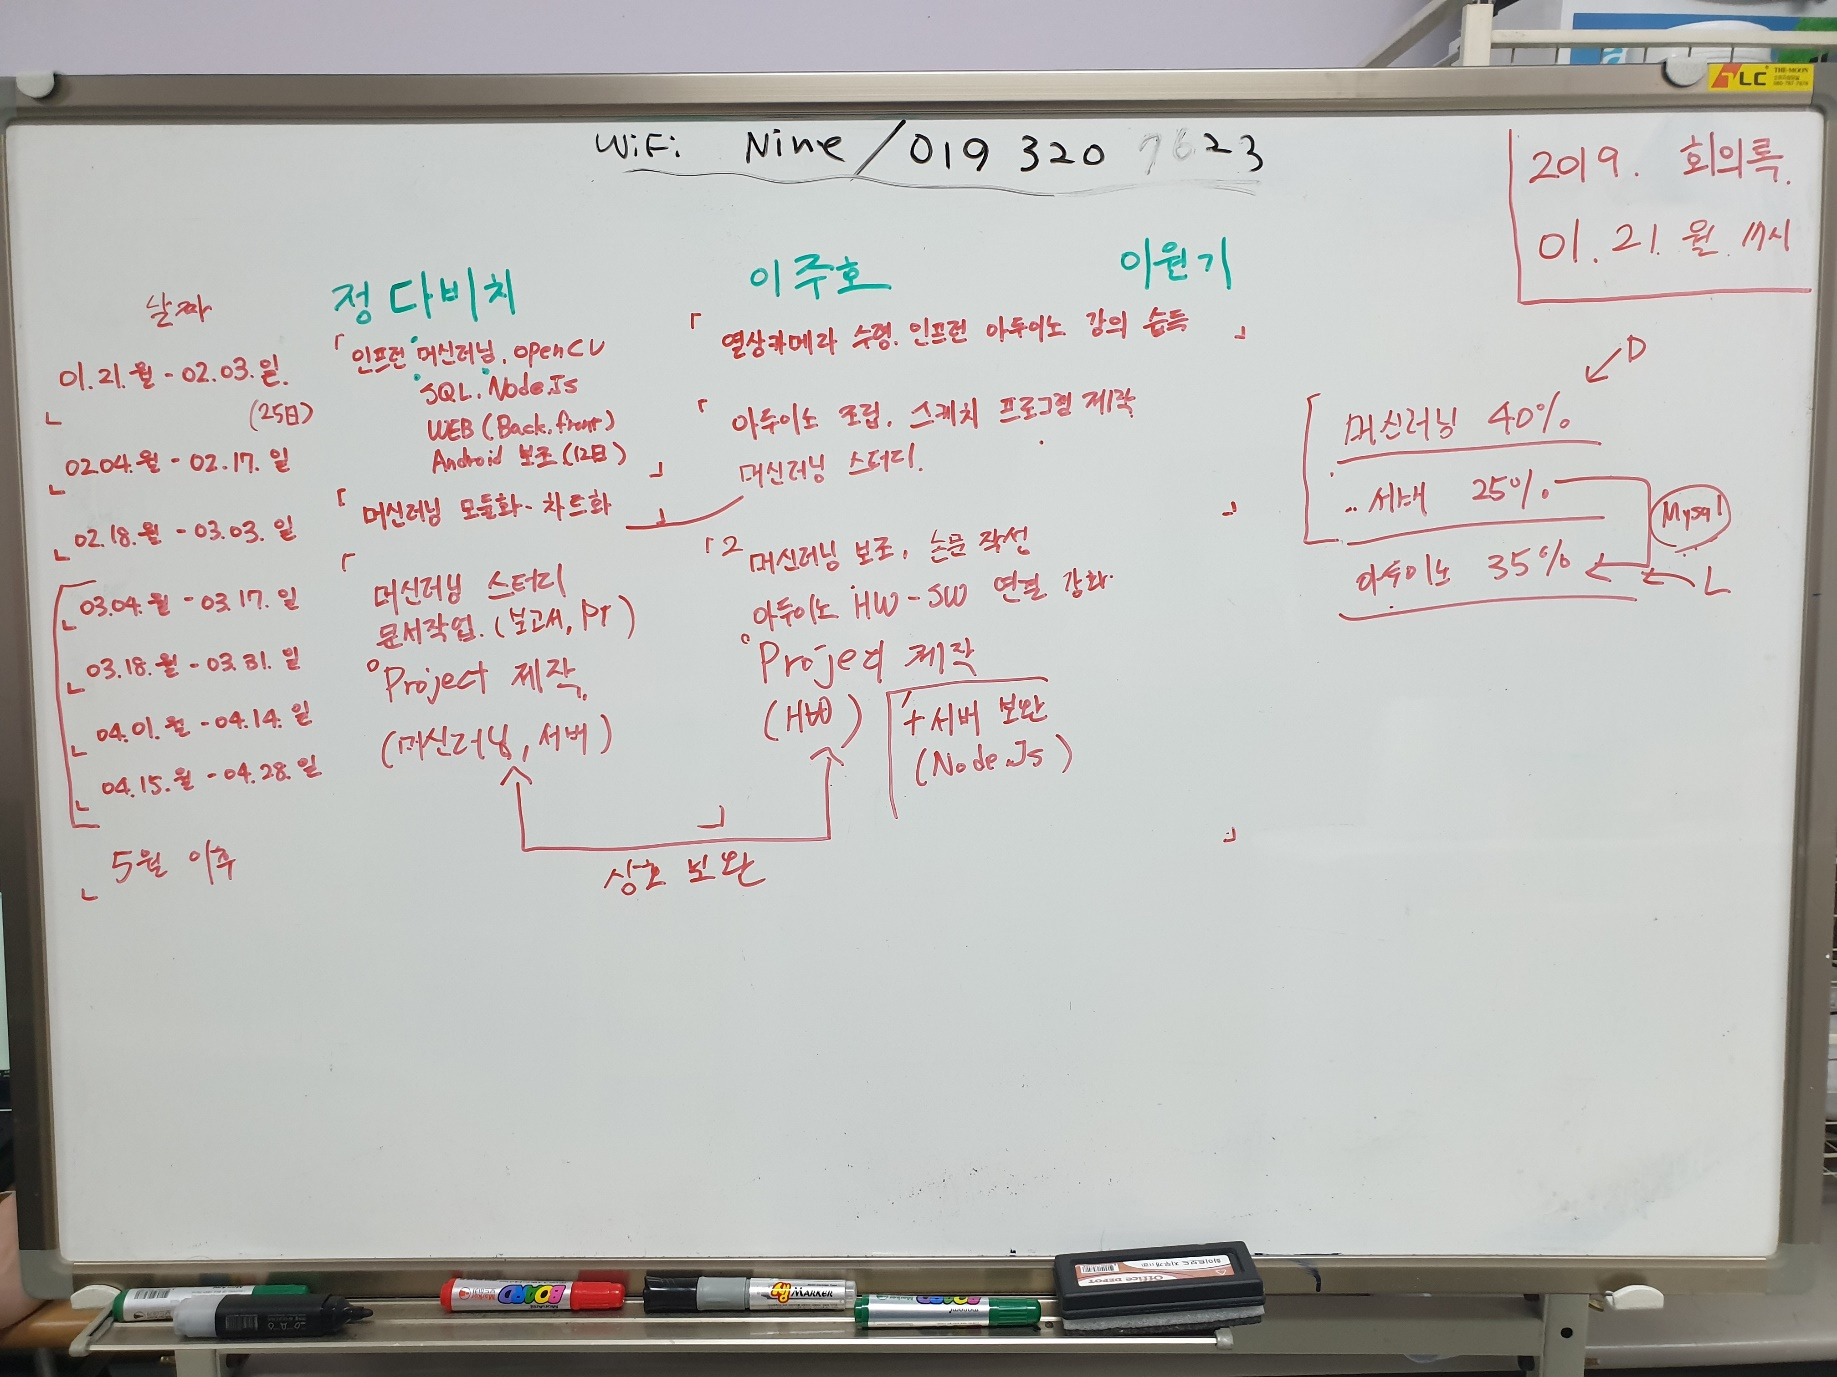 WiFi Nine / 019 320 7623
2019. 회의록.
01. 21. 월. 11시
날짜
정다비치
이주호
이원기
01.21.월 - 02.03.일.
(25日)
02.04.월 - 02.17.일
02.18.월 - 03.03.일
03.04.월 - 03.17.일
03.18.월 - 03.31.일
04.01.월 - 04.14.일
04.15.월 - 04.28.일
5월 이후
「인프런 머신러닝, OpenCV
SQL, Node.Js
WEB (Back, front)
Android 보조 (12日) 」
「머신러닝 모듈화 - 차트화 」
「머신러닝 스터디
문서작업. (보고서, PT)
Project 제작
(머신러닝, 서버)
」
「열상카메라 수령. 인프런 아두이노 강의 습득 」
「아두이노 조립, 스케치 프로그램 제작
머신러닝 스터디.
」
「2 머신러닝 보조, 논문 작성
아두이노 HW - SW 연결 강화
Project 제작
(HW)
+ 서버 보완
(Node.Js)
」
상호 보완
D
머신러닝 40%
서버 25%
Mysql
아두이노 35%
L
LC
THE-MOON
BOARD
MARKER
BOARD
OFFICE DEPOT